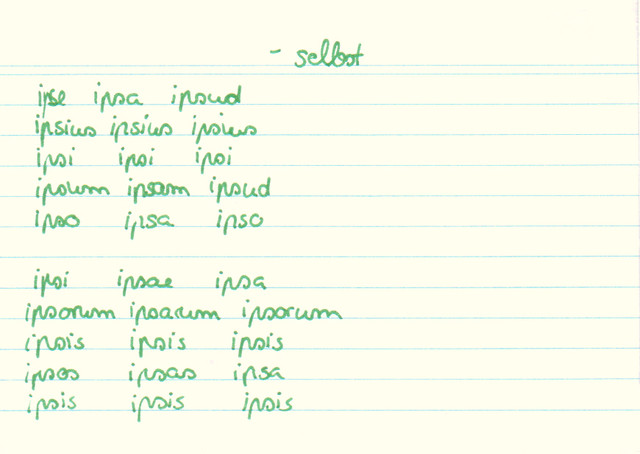 - selbst
ipse ipsa ipsud
ipsius ipsius ipsius
ipsi ipsi ipsi
ipsum ipsam ipsud
ipso ipsa ipso
ipsi ipsae ipsa
ipsorum ipsarum ipsorum
ipsis ipsis ipsis
ipsos ipsas ipsa
ipsis ipsis ipsis